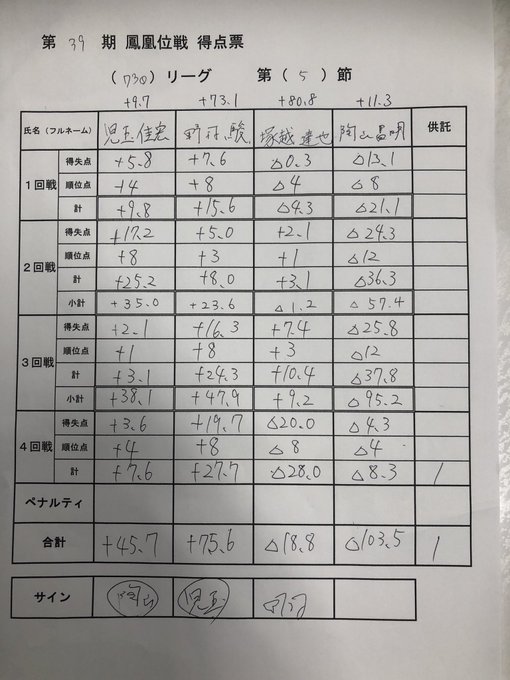 第 39 期 鳳凰位戦 得点票
(D3①) リーグ 第 (5) 節
+9.7 +73.1 +80.8 +11.3
氏名(フルネーム) 児玉佳宏 野村駿 塚越達也 陶山昌明 供託
1回戦
得失点 +5.8 +7.6 △0.3 △13.1
順位点 +4 +8 △4 △8
計 +9.8 +15.6 △4.3 △21.1
2回戦
得失点 +17.2 +5.0 +2.1 △24.3
順位点 +8 +3 +1 △12
計 +25.2 +8.0 +3.1 △36.3
小計 +35.0 +23.6 △1.2 △57.4
3回戦
得失点 +2.1 +16.3 +7.4 △25.8
順位点 +1 +8 +3 △12
計 +3.1 +24.3 +10.4 △37.8
小計 +38.1 +47.9 +9.2 △95.2
4回戦
得失点 +3.6 +19.7 △20.0 △4.3
順位点 +4 +8 △8 △4
計 +7.6 +27.7 △28.0 △8.3 1
ペナルティ
合計 +45.7 +75.6 △18.8 △103.5 1
サイン 陶山 児玉